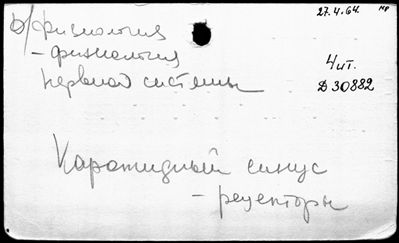 27.4.64. нр
б/физиология
- физиология
нервной системы
Чит.
Д 30882
Каротидный синус
- рецепторы